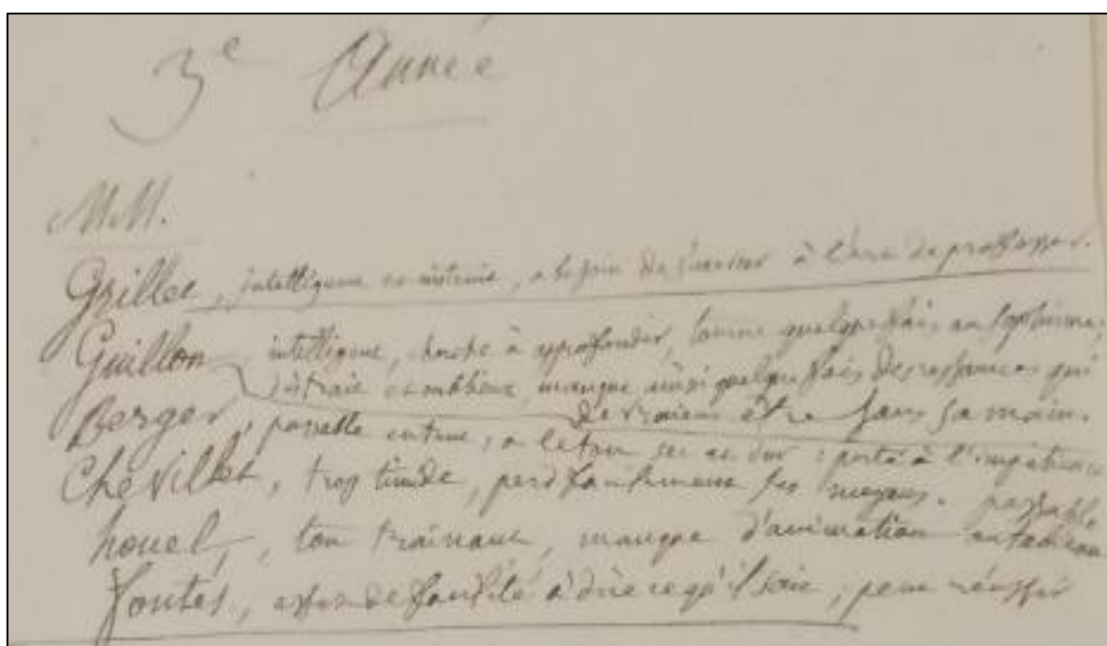 3e Année
MM.
Grillet, intelligent et instruit, a besoin de s'exercer à l'art de professer.
Guillon, intelligent, cherche à approfondir, tourne quelquefois au sophisme;
distrait et oublieux, manque ainsi quelquefois des ressources qui
devraient être sous sa main.
Berger, passable en tout, a le ton sec et dur; porté à l'impatience
Chevillet, trop timide, perd facilement ses moyens. passable
houel, ton trainant, manque d'animation au tableau
fontes, assez de facilité à dire ce qu'il sait, peut réussir